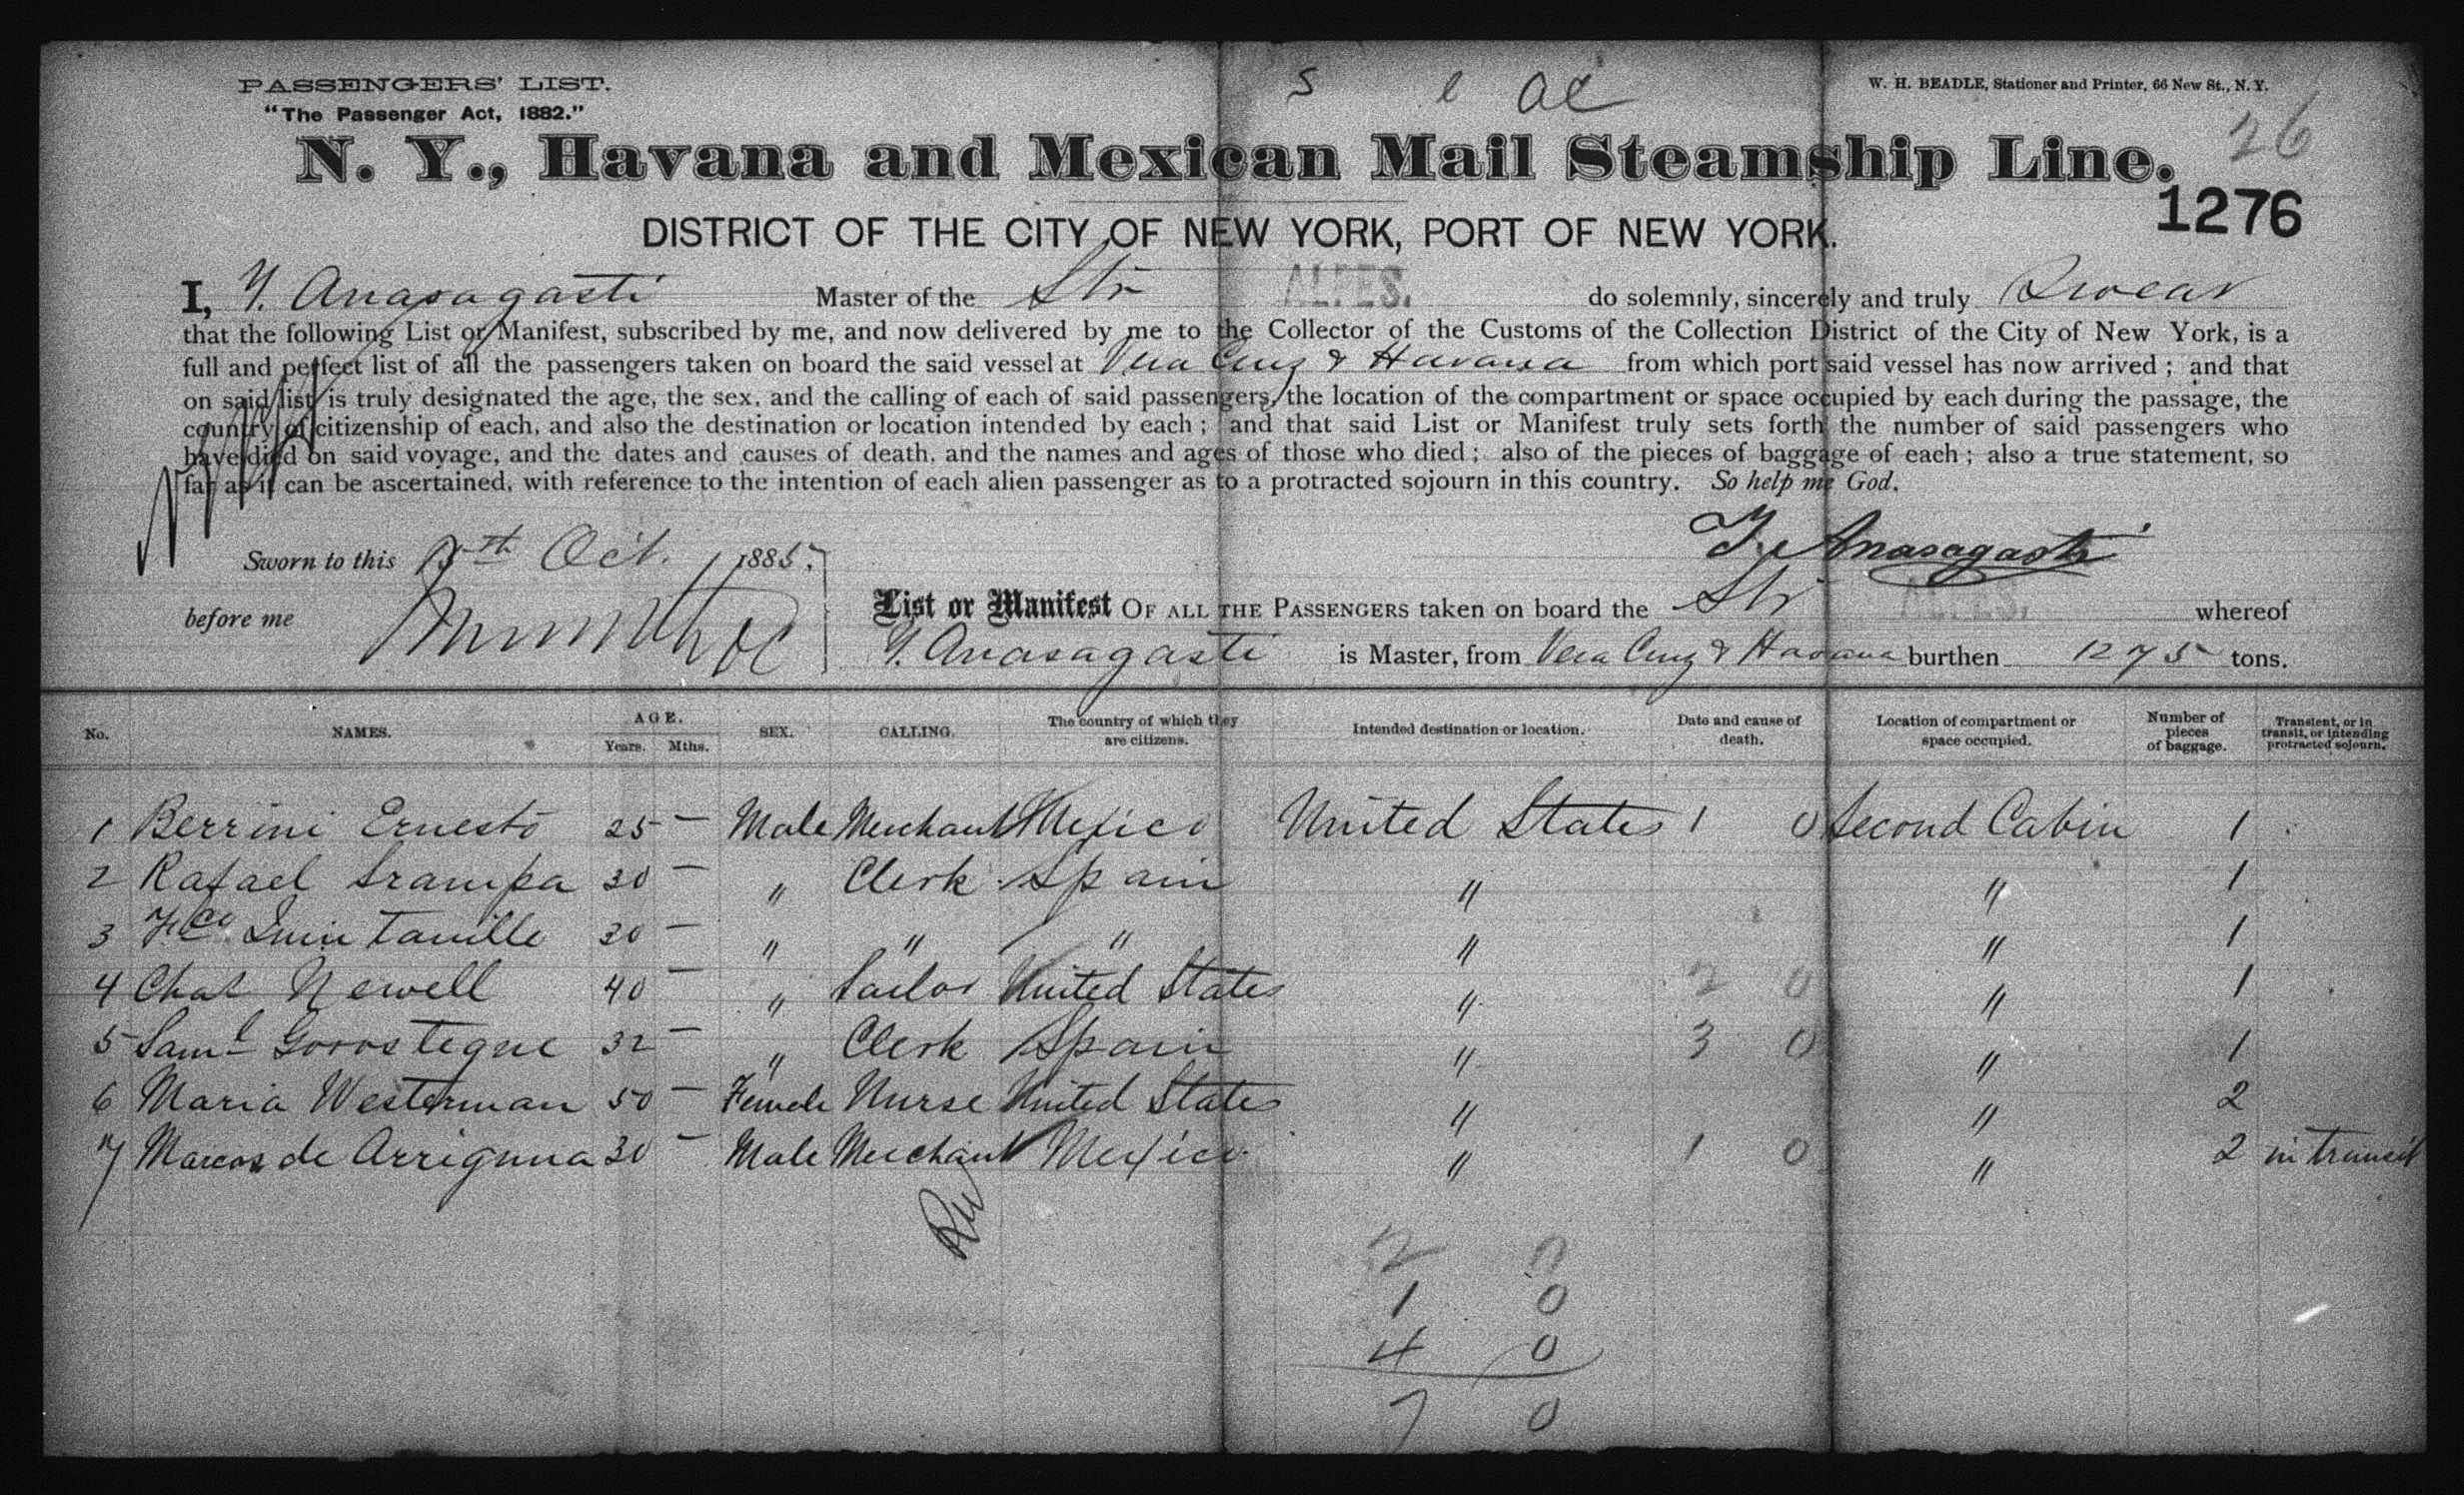 PASSENGERS' LIST.
"The Passenger Act, 1882."
s e al
W. H. BEADLE, Stationer and Printer, 66 New St., N. Y.
26
N. Y., Havana and Mexican Mail Steamship Line.
1276
DISTRICT OF THE CITY OF NEW YORK, PORT OF NEW YORK.
I, Y. Anasagasti Master of the Str ALPES. do solemnly, sincerely and truly Swear
that the following List or Manifest, subscribed by me, and now delivered by me to the Collector of the Customs of the Collection District of the City of New York, is a
full and perfect list of all the passengers taken on board the said vessel at Vera Cruz & Havana from which port said vessel has now arrived; and that
on said list is truly designated the age, the sex, and the calling of each of said passengers, the location of the compartment or space occupied by each during the passage, the
country of citizenship of each, and also the destination or location intended by each; and that said List or Manifest truly sets forth the number of said passengers who
have died on said voyage, and the dates and causes of death, and the names and ages of those who died; also of the pieces of baggage of each; also a true statement, so
far as it can be ascertained, with reference to the intention of each alien passenger as to a protracted sojourn in this country. So help me God.
Y. Anasagasti
Sworn to this 15th Oct. 1885.
before me
List or Manifest OF ALL THE PASSENGERS taken on board the Str ALPES. whereof
Y. Anasagasti is Master, from Vera Cruz & Havana burthen 1275 tons.
No. NAMES. AGE. Years. Mths. SEX. CALLING. The country of which they are citizens. Intended destination or location. Date and cause of death. Location of compartment or space occupied. Number of pieces of baggage. Transient, or in transit, or intending protracted sojourn.
1 Berrini Ernesto 25 — Male Merchant Mexico United States 1 0 Second Cabin 1
2 Rafael Srampa 30 — " Clerk Spain " " 1
3 Fco. Quintanille 30 — " " " " " 1
4 Chas Newell 40 — " Sailor United States " 2 0 " 1
5 Saml Goroztegue 32 — " Clerk Spain " 3 0 " 1
6 Maria Westerman 50 — Female Nurse United States " " 2
7 Marcos de Arriguna 30 — Male Merchant Mexico " 1 0 " 2 in transit
2 0
1 0
4 0
7 0